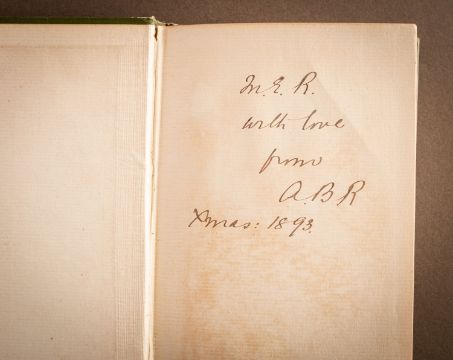 M.E.R.
with love
from
A.B.R
Xmas: 1893.